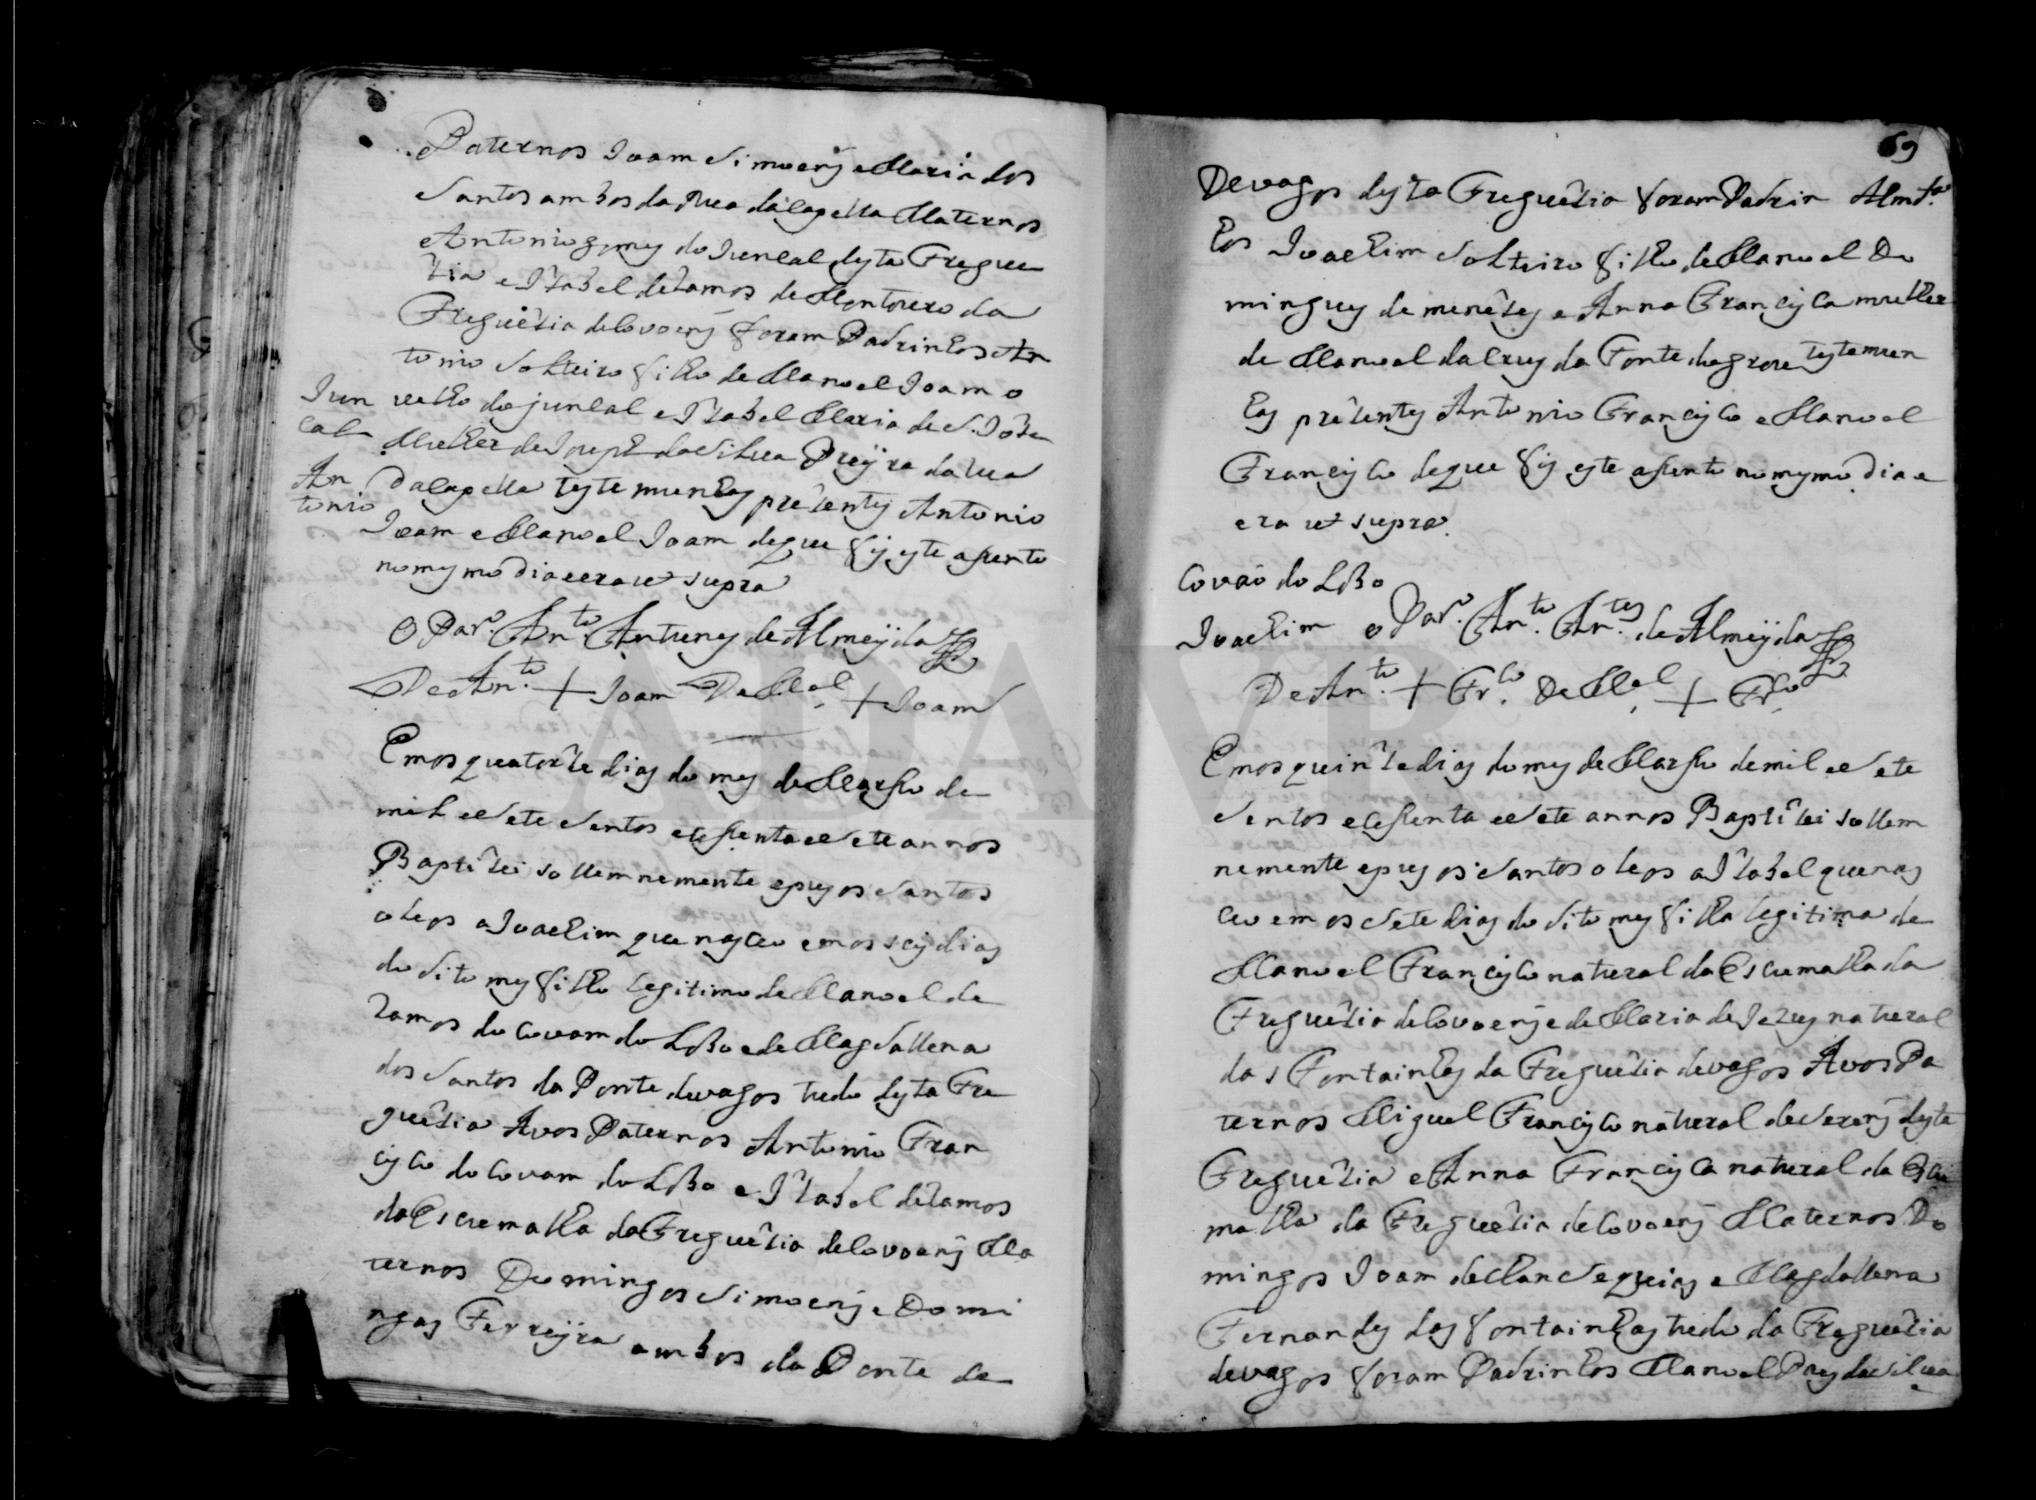 Paternos Joam Simoens e Maria dos
Santos ambos da Rua da Capella Maternos
Antonio Gomes do Juncal desta Fregue
zia e Izabel de Ramos de Montouro da
Freguezia de Covoens foram Padrinhos An
tonio solteiro filho de Manoel Joam o
Jun velho do juncal e Izabel Maria de S. Joze
cal Mulher de Joseph da Silva Pereyra da Rua
An da Capella testemunhas prezentes Antonio
tonio Joam e Manoel Joam de que fis este asento
no mesmo dia e era ut supra
O Par.o An.to Antunes de Almeyda
De An.to + Joam De M.el + Joam
Em os quatorze dias do mes de Marso de
mil e sete sentos e sesenta e sete annos
Baptizei sollemnemente e pus os santos
oleos a Joachim que nasceo em os seis dias
do dito mes filho legitimo de Manoel de
Ramos do Covam do Lobo e de Magdallena
dos Santos da Ponte de vagos tudo desta Fre
guezia Avos Paternos Antonio Fran
cisco do Covam do Lobo e Izabel de Ramos
da Escumalha da Freguezia de Covoens Ma
ternos Domingos Simoens e Domi
ngas Ferreyra ambos da Ponte de
69
De vagos desta Freguezia foram Padrin
hos Joachim solteiro filho de Manoel Do
mingues de menezes e Anna Francisca mulher
de Manoel da Crus da Fonte do grou testemun
has prezentes Antonio Francisco e Manoel
Francisco de que fis este asento no mesmo dia e
era ut supra.
Covaõ do Lobo
Joachim o Par.o An.to An.tes de Almeyda
De An.to + Fr.co De M.el + Fr.co
Em os quinze dias do mes de Marso de mil e sete
sentos e sesenta e sete annos Baptizei sollem
nemente e pus os santos oleos a Izabel que nas
ceo em os sete dias do dito mes filha legitima de
Manoel Francisco natural da Escumalha da
Freguezia de Covoens e de Maria de Jezus natural
das Fontainhas da Freguezia de vagos Avos Pa
ternos Miguel Francisco natural de Serens desta
Freguezia e Anna Francisca natural da Escu
malha da Freguezia de Covoens Maternos Do
mingos Joam de e Magdallena
Fernandes das fontainhas tudo da Freguezia
de vagos foram Padrinhos Manoel Pays da Silva